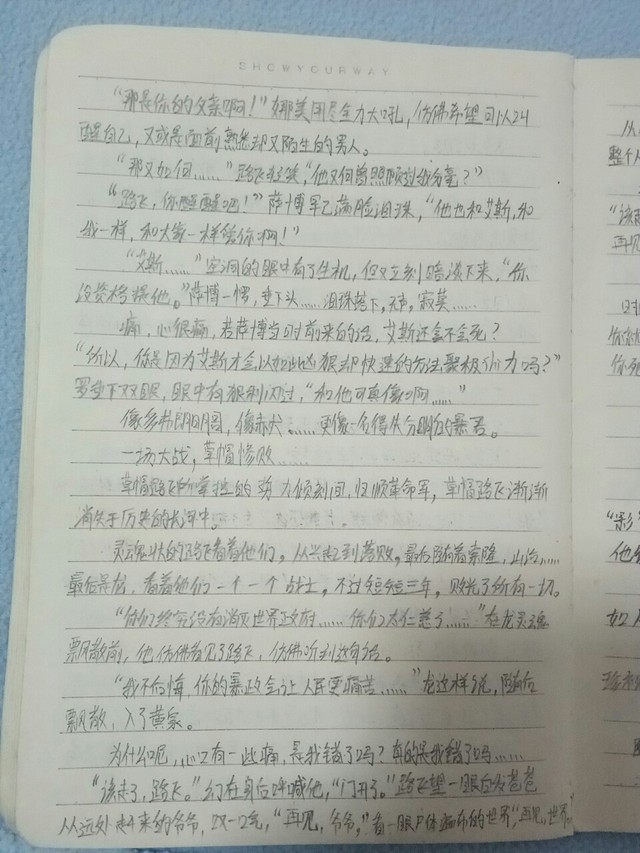 SHOWYOURWAY
"那是你的父亲啊！"娜美用尽全力大吼，仿佛希望可以叫
醒自己，又或是面前熟悉却又陌生的男人。
"那又如何……"路飞轻笑，"他又何曾照顾过我分毫？"
"路飞，你醒醒吧！"萨博早已满脸泪珠，"他也和艾斯，和
我一样，和大家一样爱你啊！"
"艾斯……"空洞的眼中有了生机，但又立刻暗淡下来，"你
没资格提他。"萨博一愣，垂下头……泪珠落下，寂寞……
痛，心很痛，若萨博当时前来的话，艾斯还会不会死？
"所以，你是因为艾斯才会以如此凶狠却快速的方法聚极力吗？"
罗垂下双眼，眼中有狠利闪过，"和他可真像啊……"
像多弗朗明哥，像赤犬……更像是分明的暴君。
一场大战，草帽惨败……
草帽路飞所掌控的势力顷刻间，归顺革命军，草帽路飞渐渐
消失于历史的长河中。
灵魂状的路飞看着他们，从兴起到落败，最后随着索隆，山治，……
最后是龙，看着他们一个一个战士，不过短短三年，败光了所有一切。
"你们终究没有消灭世界政府……你们太仁慈了……"在龙灵魂
飘散前，他仿佛看见了路飞，仿佛听到这句话。
"我不后悔，你的暴政会让人民更痛苦……"龙这样说，随后
飘散，入了黄泉。
为什么呢，心口有一些痛，是我错了吗？真的是我错了吗……
"该走了，路飞。"幻在身后呼喊他，"门开了。"路飞望一眼
从远处赶来的爷爷，叹一口气，"再见，爷爷，"看一眼的世界，"再见，世界
从
整个
"该
再见
时
你
你
"影
他
如